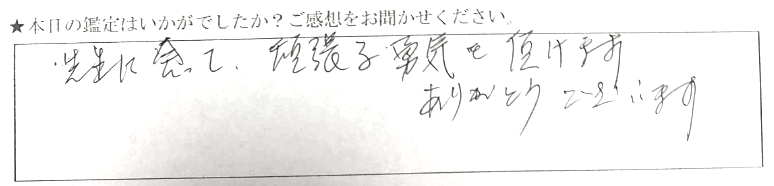 ★本日の鑑定はいかがでしたか？ご感想をお聞かせください。
先生に会って、頑張る勇気を頂けます
ありがとうございます